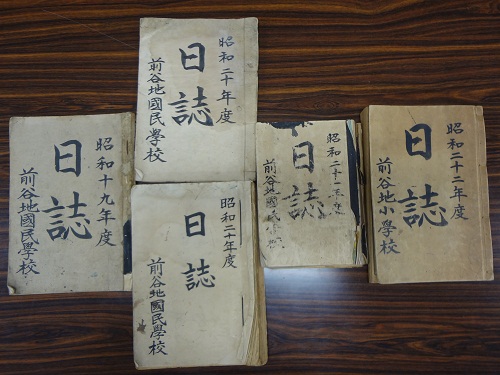 昭和十九年度
日誌
前谷地國民學校
昭和二十年度
日誌
前谷地國民學校
昭和二十年度
日誌
前谷地國民學校
昭和二十一年度
日誌
前谷地國
昭和二十二年度
日誌
前谷地小學校